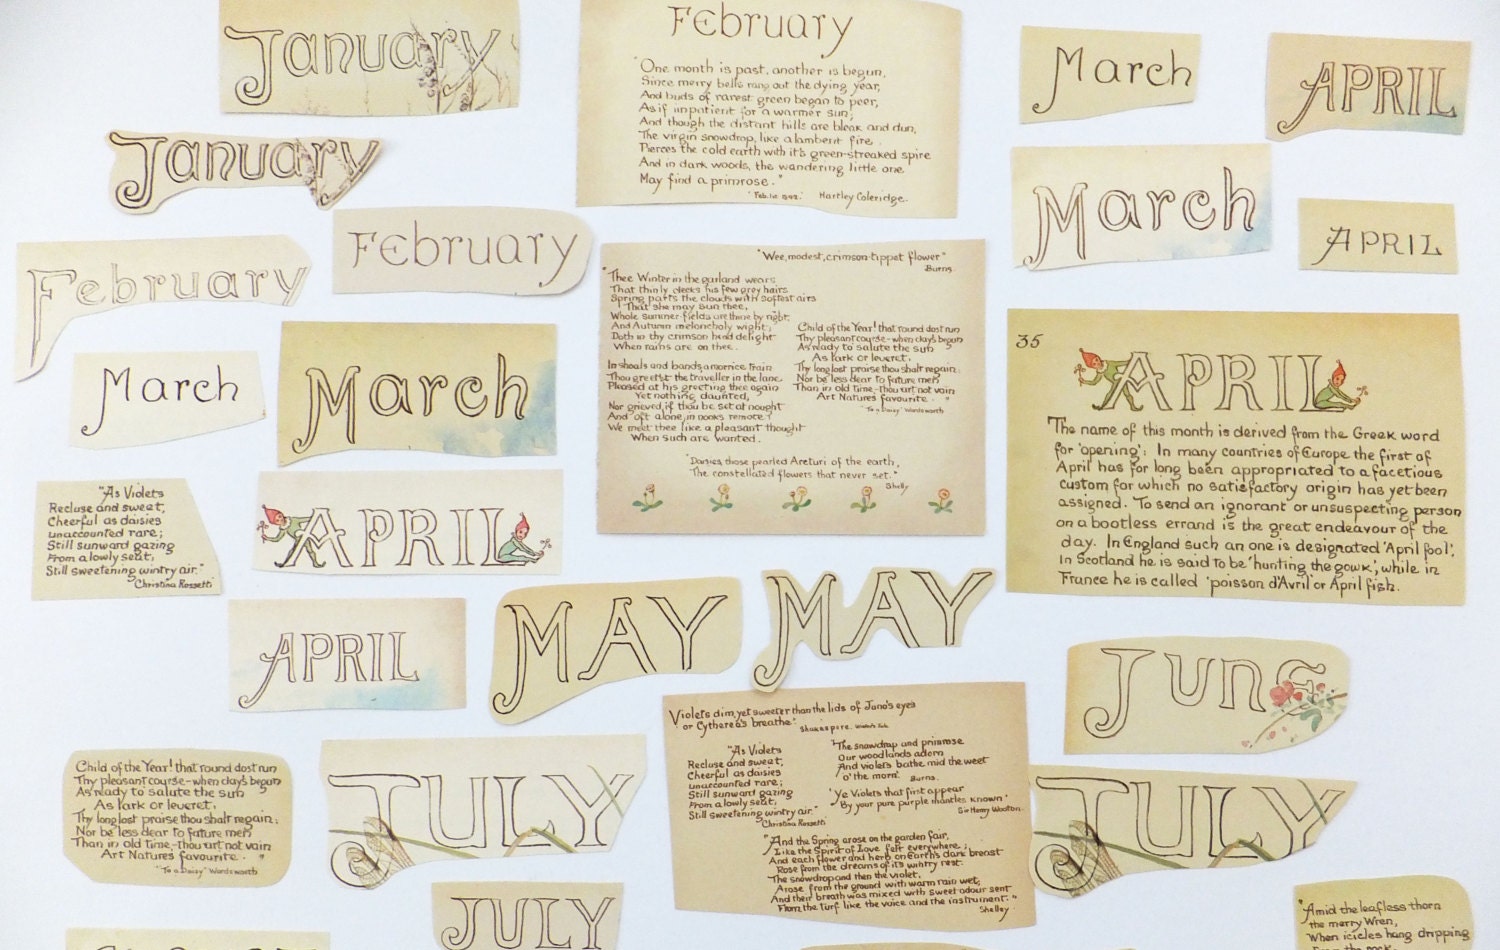 January
January
February
"One month is past, another is begun,
Since merry bells rang out the dying year,
And buds of rarest green began to peer,
As if impatient for a warmer sun;
And though the distant hills are bleak and dun,
The virgin snowdrop, like a lambent fire.
Pierces the cold earth with it's green-streaked spire
And in dark woods, the wandering little one
May find a primrose."
Hartley Coleridge.
March
APRIL
March
APRIL
February
February
March
March
"Wee, modest, crimson-tippet flower"
Burns.
"Thee Winter in the garland wears
That thinly decks his few grey hairs
Spring parts the clouds with softest airs
That she may sun thee,
Whole summer-fields are thine by right;
And Autumn melancholy wight,
Doth in thy crimson head delight
When rains are on thee.
In shoals and bands, a morrice train
Thou greet'st the traveller in the lane
Pleased at his greeting thee again
Yet nothing daunted,
Nor grieved, if thou be set at nought
And oft alone, in nooks remote
We meet thee like a pleasant thought
When such are wanted.
Child of the Year! that round dost run
Thy pleasant course-when day's begun
As ready to salute the sun
As lark or leveret,
Thy long lost praise thou shalt regain;
Nor be less dear to future men
Than in old time-thou art not vain
Art Natures favourite. "
"To a Daisy" Wordsworth
"Daisies, those pearled Arcturi of the earth,
The constellated flowers that never set."
Shelly
35
APRIL
The name of this month is derived from the Greek word
for 'opening': In many countries of Europe the first of
April has for long been appropriated to a facetious
custom for which no satisfactory origin has yet been
assigned. To send an ignorant or unsuspecting person
on a bootless errand is the great endeavour of the
day. In England such an one is designated 'April fool',
in Scotland he is said to be 'hunting the gowk', while in
France he is called 'poisson d'Avril' or April fish.
"As Violets
Recluse and sweet,
Cheerful as daisies
unaccounted rare;
Still sunward gazing
From a lowly seat,
Still sweetening wintry air."
Christina Rossetti
APRIL
APRIL
MAY
MAY
JUNE
Violets dim, yet sweeter than the lids of Juno's eyes
or Cytherea's breathe.
Shakespere.
"As Violets
Recluse and sweet,
Cheerful as daisies
unaccounted rare;
Still sunward gazing
From a lowly seat,
Still sweetening wintry air."
Christina Rossetti
"The snowdrop and primrose
Our woodlands adorn
And violets bathe mid the weet
o' the morn". Burns.
"Ye Violets that first appear
By your pure purple mantles known"
Sir Henry Wootton.
"And the Spring arose on the garden fair,
Like the Spirit of Love felt everywhere;
And each flower and herb on Earth's dark breast
Rose from the dreams of it's wintry rest.
The snowdrop and then the violet,
Arose from the ground with warm rain wet,
And their breath was mixed with sweet odour sent
From the turf like the voice and the instrument."
Shelley
Child of the Year! that round dost run
Thy pleasant course-when day's begun
As ready to salute the sun
As lark or leveret,
Thy long lost praise thou shalt regain;
Nor be less dear to future men
Than in old time-thou art not vain
Art Natures favourite. "
"To a Daisy" Wordsworth
JULY
JULY
JULY
"Amid the leafless thorn
the merry Wren,
When icicles hang dripping